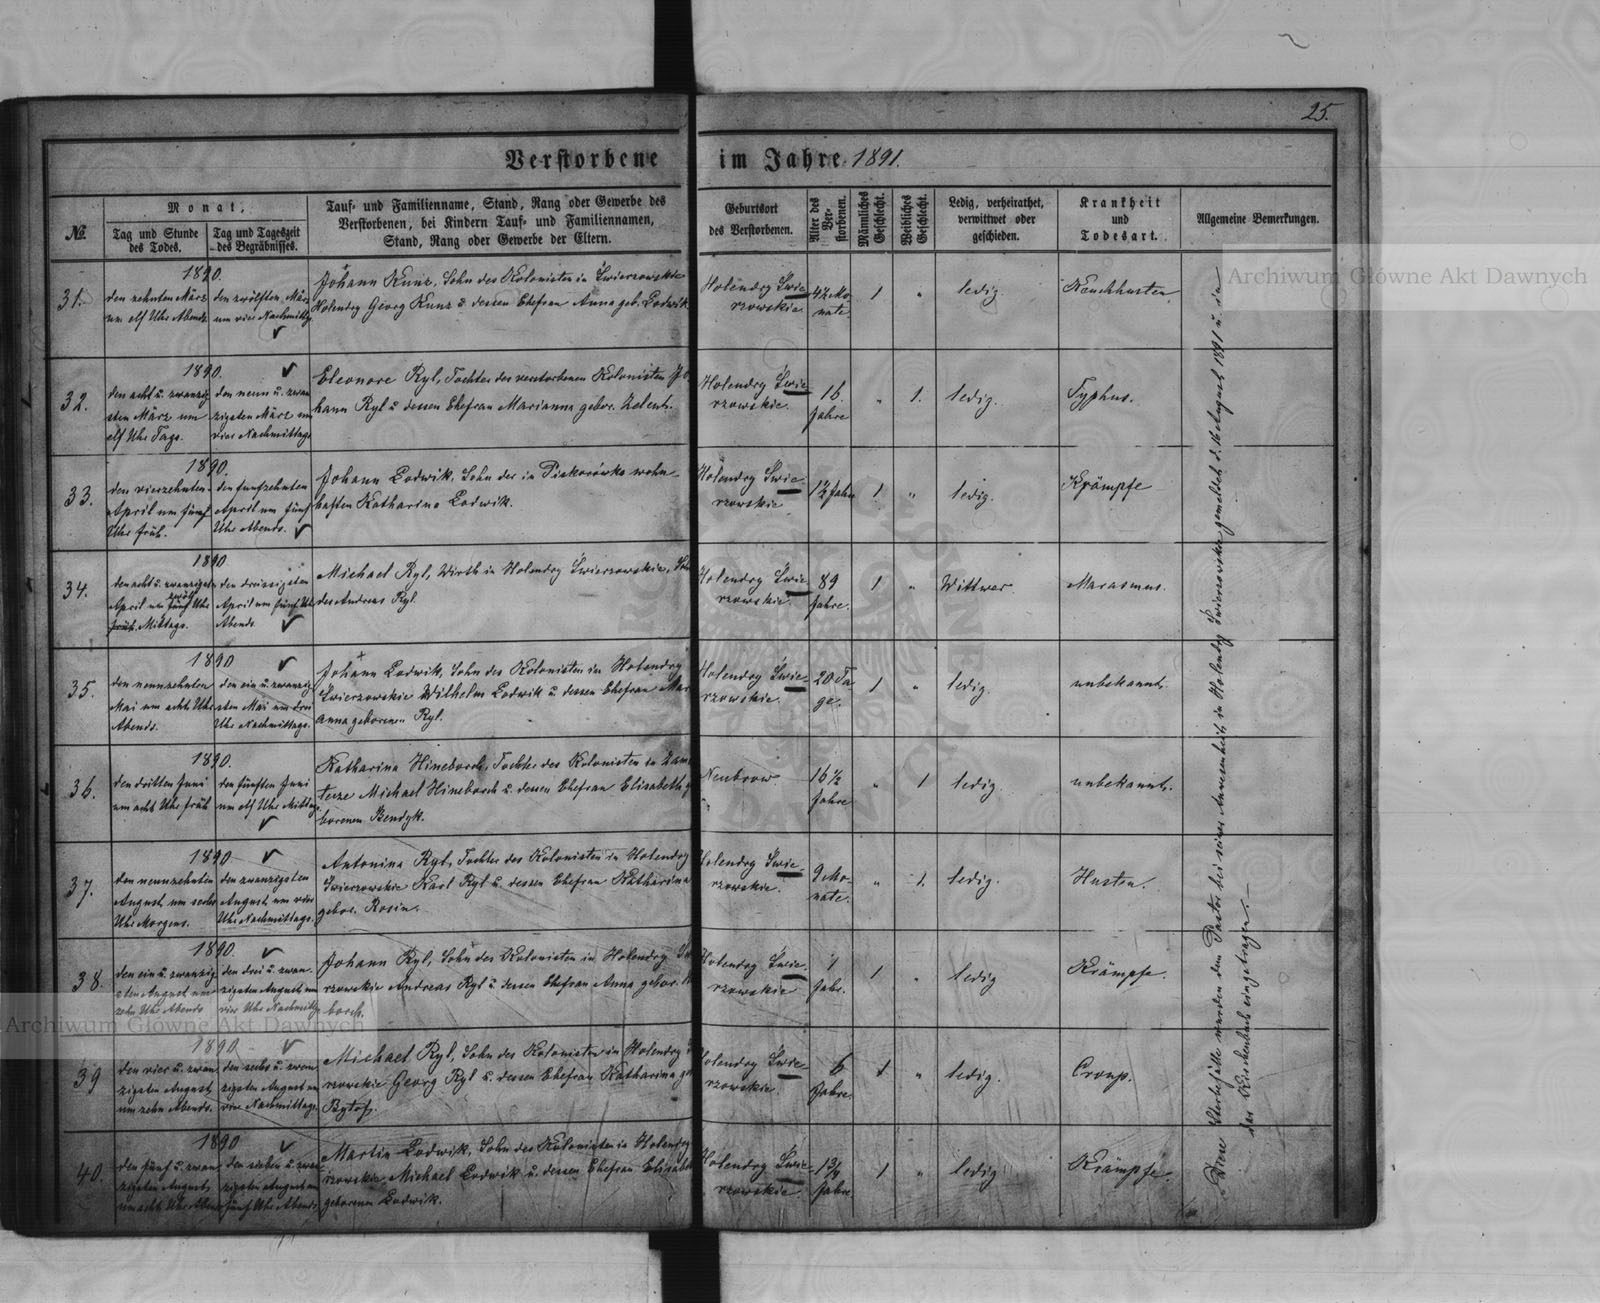 25.
Verstorbene im Jahre 1891.
№
Monat,
Tag und Stunde des Todes.
Tag und Tageszeit des Begräbnisses.
Tauf- und Familienname, Stand, Rang oder Gewerbe des
Verstorbenen, bei Kindern Tauf- und Familiennamen,
Stand, Rang oder Gewerbe der Eltern.
Geburtsort
des Verstorbenen.
Alter des Ver-storbenen.
Männliches Geschlecht.
Weibliches Geschlecht.
Ledig, verheirathet,
verwittwet oder
geschieden.
Krankheit
und
Todesart.
Allgemeine Bemerkungen.
31.
1890.
den zehnten März
um elf Uhr Abends
den zwölften März
um vier Nachmittag
Johann Kunz, Sohn des Kolonisten in Świerzowskie
Holendry Georg Kunz u dessen Ehefrau Anna geb. Lodwik
Holendry Świe-
rzowskie.
4½ Mo-
nate.
1
"
ledig
Keuchhusten
32.
1890.
den acht u. zwanzig
sten März um
elf Uhr Tags.
den neun u. zwan
zigsten März um
vier Nachmittags
Eleonore Ryl, Tochter des verstorbenen Kolonisten Jo
hann Ryl u dessen Ehefrau Marianna gebor. Zelent.
Holendry Świe-
rzowskie.
16.
Jahre
"
1.
ledig.
Typhus.
33.
1890.
den vierzehnten
April um fünf
Uhr früh.
den funfzehnten
April um fünf
Uhr Abends.
Johann Lodwik, Sohn der in Piskorówka wohn-
haften Katharina Lodwik.
Holendry Świe-
rzowskie
1½ Jahr
1
"
ledig.
Krämpfe
34.
1890
den acht u. zwanzigsten
April um zwölf Uhr
Mittags.
den dreissigsten
April um fünf Uhr
Abends
Michael Ryl, Wirth in Holendry Świerzowskie, Sohn
des Andreas Ryl.
Holendry Świe-
rzowskie.
89
Jahre.
1
"
Wittwer
Marasmus.
35.
1890
den neunzehnten
Mai um acht Uhr
Abends.
den ein u. zwanzig
sten Mai um drei
Uhr Nachmittags.
Johann Lodwik, Sohn des Kolonisten in Holendry
Świerzowskie Wilhelm Lodwik u. dessen Ehefrau Mari
anna geborenen Ryl.
Holendry Świe-
rzowskie.
20 Ta
ge.
1
"
ledig.
unbekannt.
36.
1890.
den dritten Juni
um acht Uhr früh
den fünften Juni
um elf Uhr Mittag.
Katharina Hineborch, Tochter des Kolonisten in Zam
Michael Hineborch u. dessen Ehefrau Elisabeth g
borenen Bendyk.
Neubrow
16½
Jahre
"
1
ledig.
unbekannt.
37.
1890
den neunzehnten
August um sechs
Uhr Morgens.
den zwanzigsten
August um vier
Uhr Nachmittags.
Antonina Ryl, Tochter des Kolonisten in Holendry
Świerzowskie Karl Ryl u. dessen Ehefrau Katharina
gebor. Rosin.
Holendry Świe-
rzowskie.
9 Mo-
nate.
"
1.
ledig.
Husten.
38.
1890.
den ein u. zwanzig
sten August um
zehn Uhr Abends
den drei u. zwan-
zigsten August um
vier Uhr Nachmittag
Johann Ryl, Sohn des Kolonisten in Holendry Św
rzowskie Andreas Ryl u dessen Ehefrau Anna gebor. H
borch.
Holendry Świe-
rzowskie
1
Jahr.
1
"
ledig
Krämpfe.
39
1890
den vier u. zwan
zigsten August
um zehn Abends.
den sechs u. zwan
zigsten August um
vier Nachmittags.
Michael Ryl, Sohn des Kolonisten in Holendry
rzowskie Georg Ryl u. dessen Ehefrau Katharina ge
Bytof.
Holendry Świe-
rzowskie.
6
Jahre.
1
"
ledig.
Croup.
40.
1890
den fünf u. zwan
zigsten August
um acht Uhr Abends
den sieben u. zwan
zigsten August um
fünf Uhr Abends.
Martin Lodwik, Sohn des Kolonisten in Holendry
rzowskie Michael Lodwik u. dessen Ehefrau Elisabeth
geborenen Lodwik.
Holendry Świe-
rzowskie
1¾
Jahre
1
"
ledig
Krämpfe.
Diese Sterbefälle wurden dem Pastor bei seiner Anwesenheit in Holendry Świerzowskie gemeldet d. 16 August 1891 u. in
das Kirchenbuch eingetragen.
Archiwum Główne Akt Dawnych
Archiwum Główne Akt Dawnych